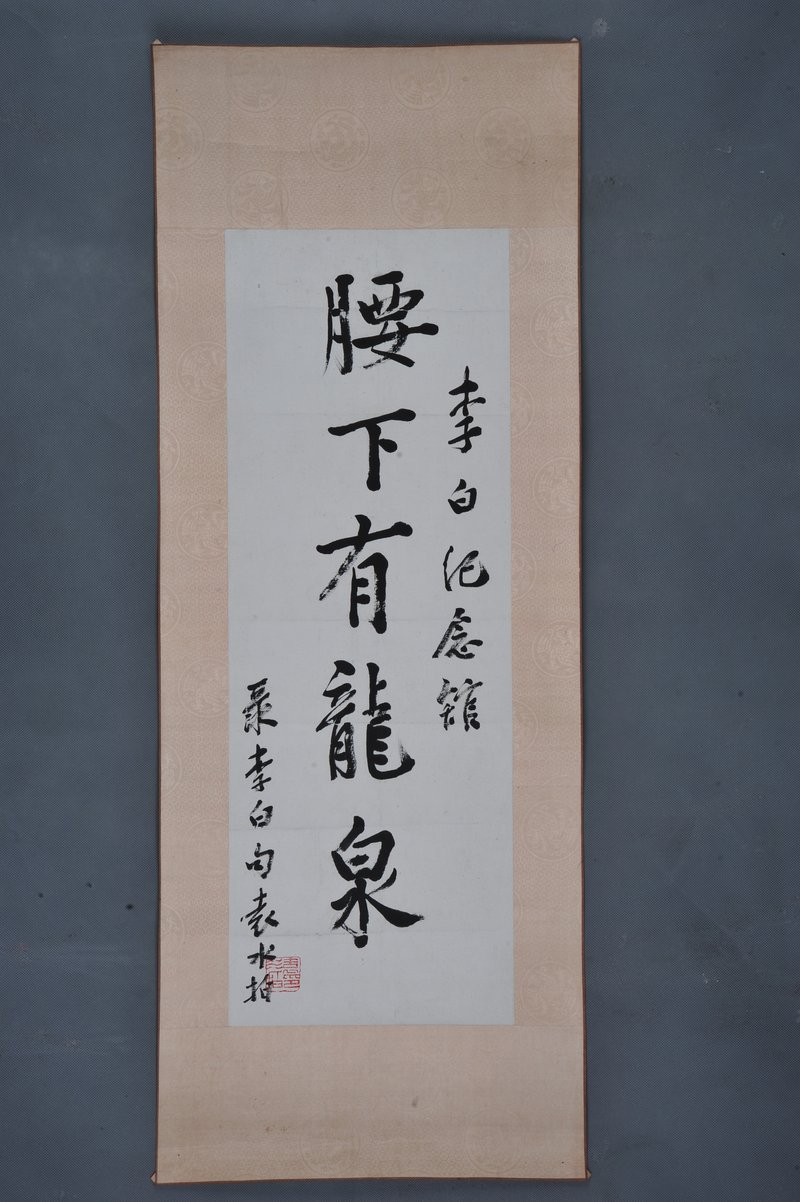 李白纪念館
腰下有龍泉
聚李白句袁水拍